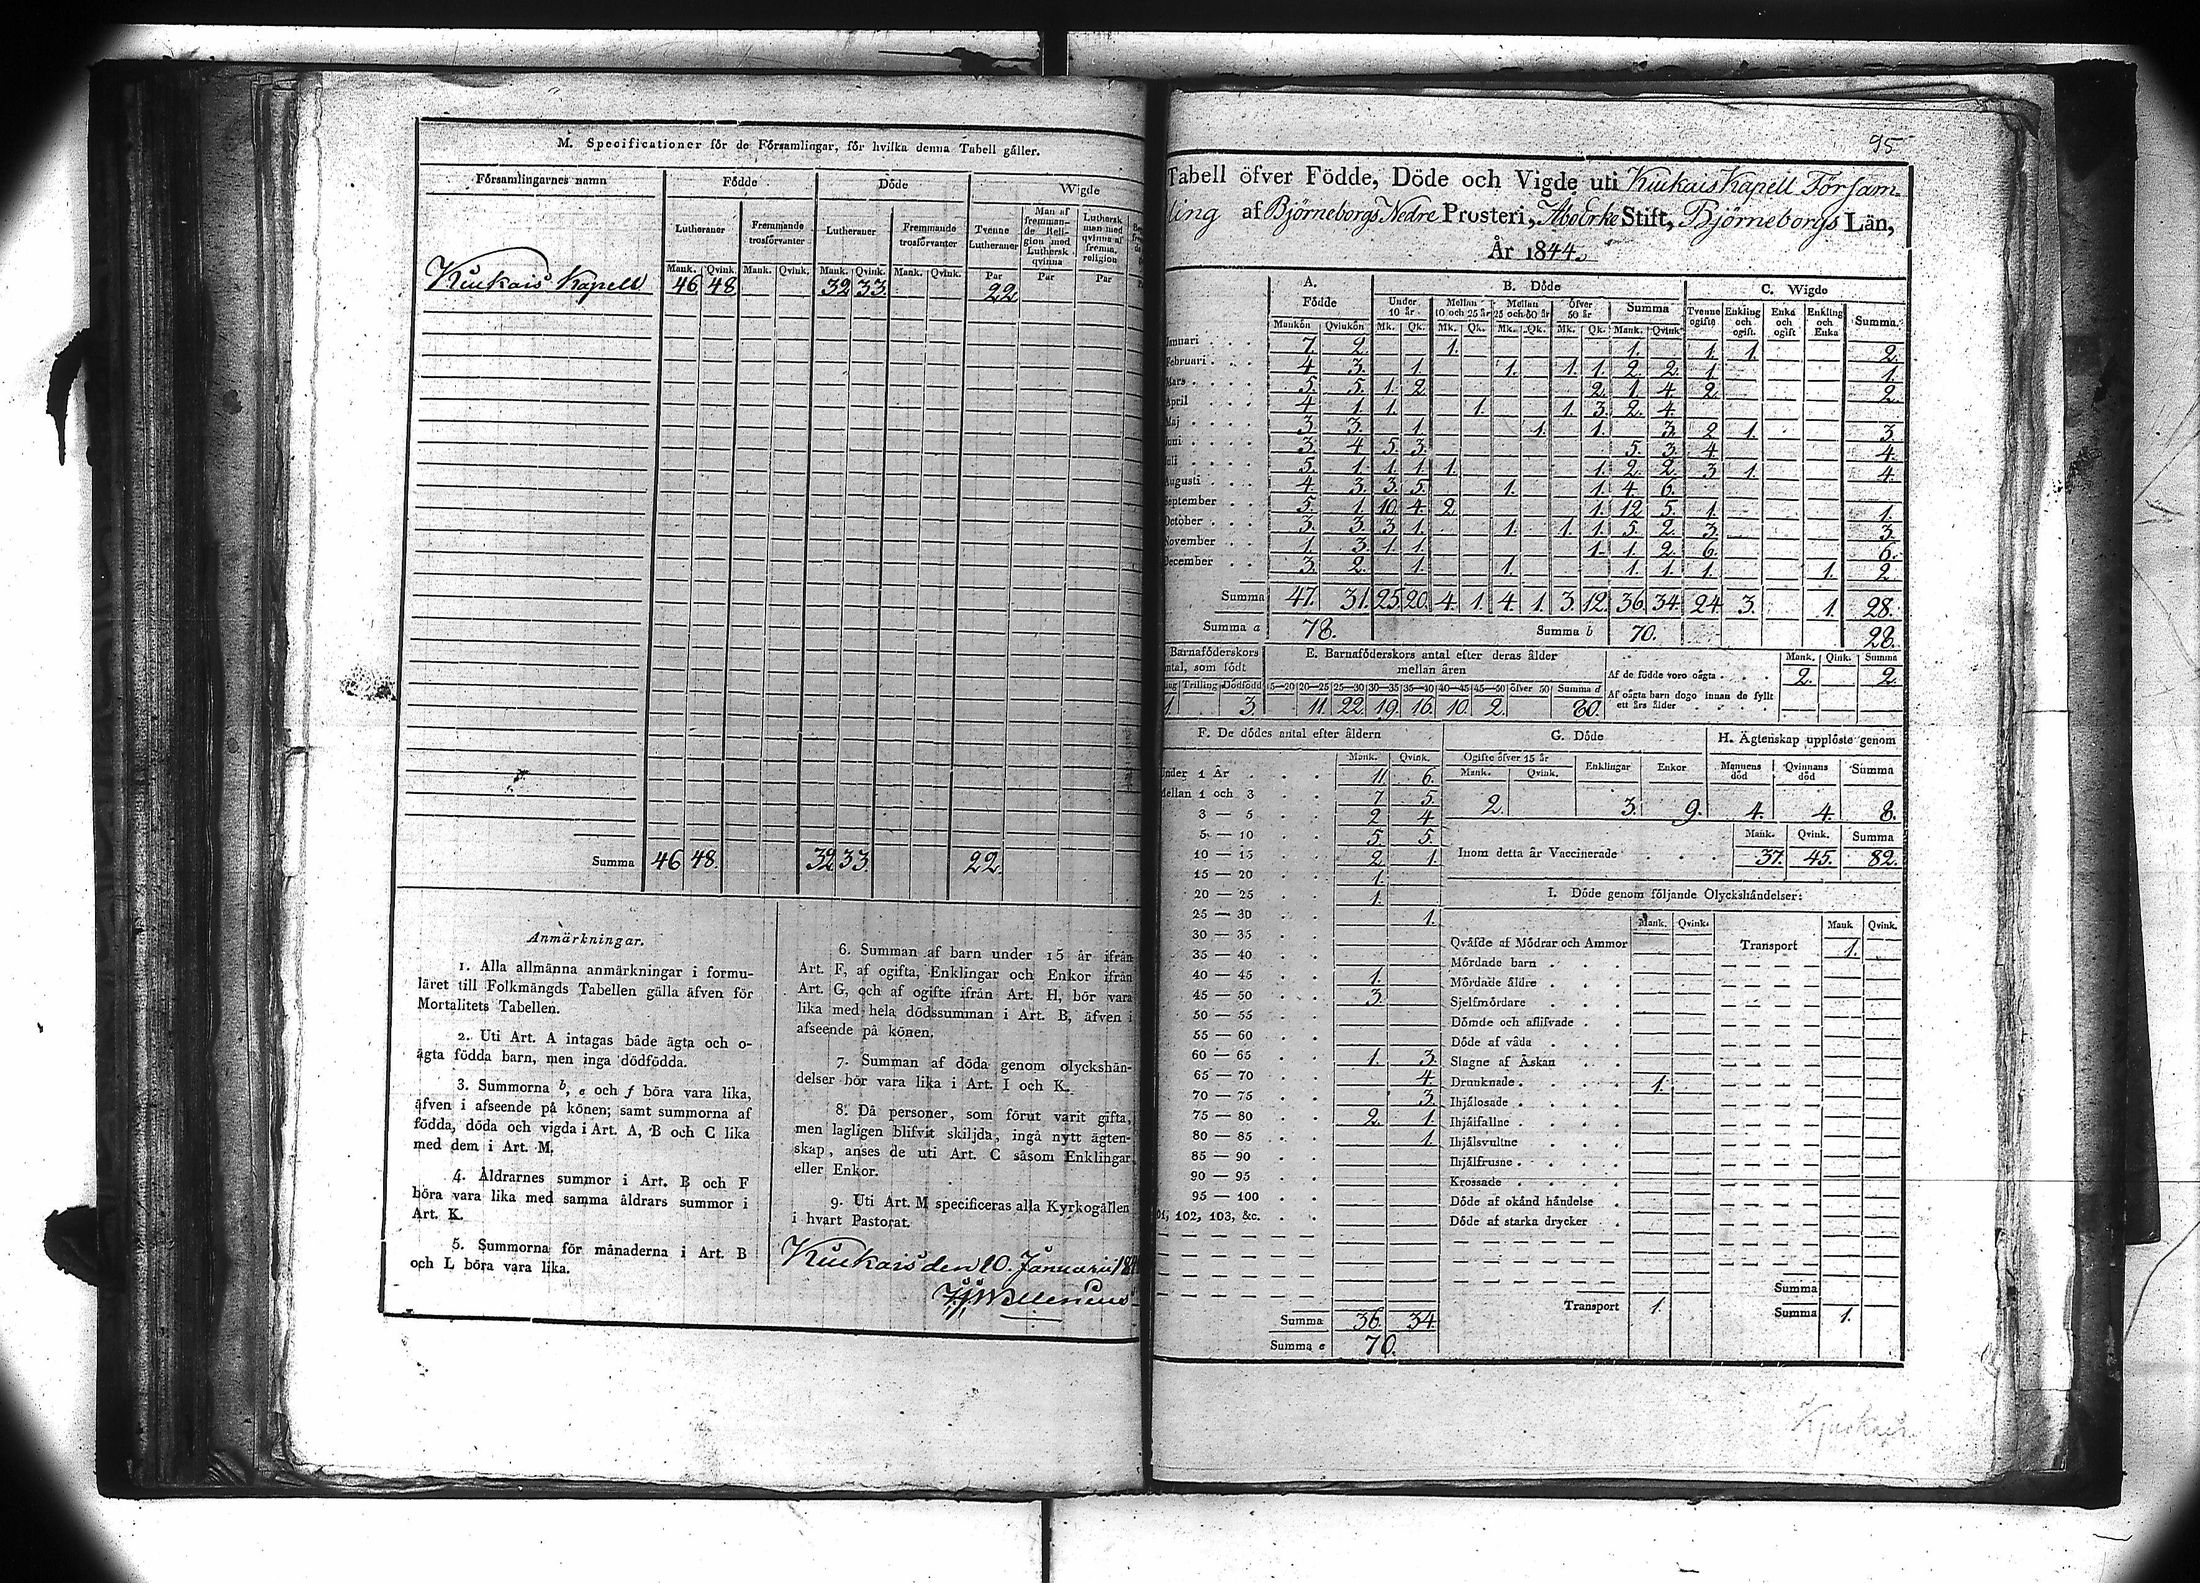 M. Specificationer för de Församlingar, för hvilka denna Tabell gäller.
Församlingarnes namn Födde Döde Wigde
Lutheraner Fremmande trosförvanter Lutheraner Fremmande trosförvanter Tvenne Lutheraner Man af fremmande Religion med Luthersk qvinna Luthersk man med qvinna af fremm. religion
Mank. Qvink. Mank. Qvink. Mank. Qvink. Mank. Qvink. Par Par Par
Kiukais Kapell 46 48 32 33 22
Summa 46 48. 32 33. 22.
Anmärkningar.
1. Alla allmänna anmärkningar i formu-
läret till Folkmängds Tabellen gälla äfven för
Mortalitets Tabellen.
2. Uti Art. A intagas både ägta och o-
ägta födda barn, men inga dödfödda.
3. Summorna b, e och f böra vara lika,
äfven i afseende på könen; samt summorna af
födda, döda och vigda i Art. A, B och C lika
med dem i Art. M.
4. Åldrarnes summor i Art. B och F
böra vara lika med samma åldrars summor i
Art. K.
5. Summorna för månaderna i Art. B
och L böra vara lika.
6. Summan af barn under 15 år ifrån
Art. F, af ogifta, Enklingar och Enkor ifrån
Art. G, och af ogifte ifrån Art. H, bör vara
lika med hela dödssumman i Art. B, äfven i
afseende på könen.
7. Summan af döda genom olyckshän-
delser bör vara lika i Art. I och K.
8. Då personer, som förut varit gifta,
men lagligen blifvit skiljda, ingå nytt ägten-
skap, anses de uti Art. C såsom Enklingar
eller Enkor.
9. Uti Art. M specificeras alla Kyrkogällen
i hvart Pastorat.
Kiukais den 10. Januarii
95
Tabell öfver Födde, Döde och Vigde uti Kiukais Kapell Försam-
ling af Björneborgs Nedre Prosteri, Åbo Erke Stift, Björneborgs Län,
År 1844.
A. Födde B. Döde C. Wigde
Under 10 år Mellan 10 och 25 år Mellan 25 och 50 år Öfver 50 år Summa Tvenne ogifte Enkling och ogift. Enka och ogift Enkling och Enka Summa.
Mankön Qvinkön Mk. Qk. Mk. Qk. Mk. Qk. Mk. Qk. Mank. Qvink.
Januari 7. 2. 1. 1. 1. 1. 2.
Februari 4. 3. 1. 1. 1. 1. 2. 2. 1. 1.
Mars 5. 5. 1. 2. 2. 1. 4. 2. 2.
April 4. 1. 1. 1. 1. 3. 2. 4.
Maj 3. 3. 1. 1. 1. 3. 2. 1. 3.
Juni 3. 4 5. 3. 5. 3. 4. 4.
Juli 5. 1. 1. 1. 1. 1. 2. 2. 3. 1. 4.
Augusti 4. 3. 3. 5. 1. 1. 4. 6.
September 5. 1. 10. 4. 2. 1. 12. 5. 1. 1.
October 3. 3. 3. 1. 1. 1. 1. 5. 2. 3. 3.
November 1. 3. 1. 1. 1. 1. 2. 6. 6.
December 3. 2. 1. 1. 1. 1. 1. 1. 2.
Summa 47. 31. 25. 20. 4. 1. 4. 1. 3. 12. 36. 34. 24. 3. 1. 28.
Summa a 78. Summa b 70. 28.
Barnaföderskors antal, som födt
Trilling Dödfödd
1. 3.
E. Barnaföderskors antal efter deras ålder mellan åren
15—20 20—25 25—30 30—35 35—40 40—45 45—50 öfver 50 Summa d
11. 22. 19. 16. 10. 2. 80.
Mank. Qink. Summa
Af de födde voro oägta 2. 2.
Af oägta barn dogo innan de fyllt ett års ålder
F. De dödes antal efter åldern
Mank. Qvink.
Under 1 År 11. 6.
Mellan 1 och 3 7. 5.
3 — 5 2. 4.
5 — 10 5. 5.
10 — 15 2. 1.
15 — 20 1.
20 — 25 1.
25 — 30 1.
30 — 35
35 — 40
40 — 45 1.
45 — 50 3.
50 — 55
55 — 60
60 — 65 1. 3.
65 — 70 4.
70 — 75 3.
75 — 80 2. 1.
80 — 85 1.
85 — 90
90 — 95
95 — 100
101, 102, 103, &c.
Summa 36. 34.
Summa e 70.
G. Döde
Ogifte öfver 15 år Enklingar Enkor
Mank. Qvink.
2. 3. 9.
H. Ägtenskap upplöste genom
Mannens död Qvinnans död Summa
4. 4. 8.
Mank. Qvink. Summa
Inom detta år Vaccinerade 37. 45. 82.
I. Döde genom följande Olyckshändelser:
Mank. Qvink. Mank Qvink.
Qväfde af Mödrar och Ammor Transport 1.
Mördade barn
Mördade äldre
Sjelfmördare
Dömde och aflifvade
Döde af våda
Slagne af Åskan
Drunknade 1.
Ihjälosade
Ihjälfallne
Ihjälsvultne
Ihjälfrusne
Krossade
Döde af okänd händelse
Döde af starka drycker
Summa
Transport 1. Summa 1.